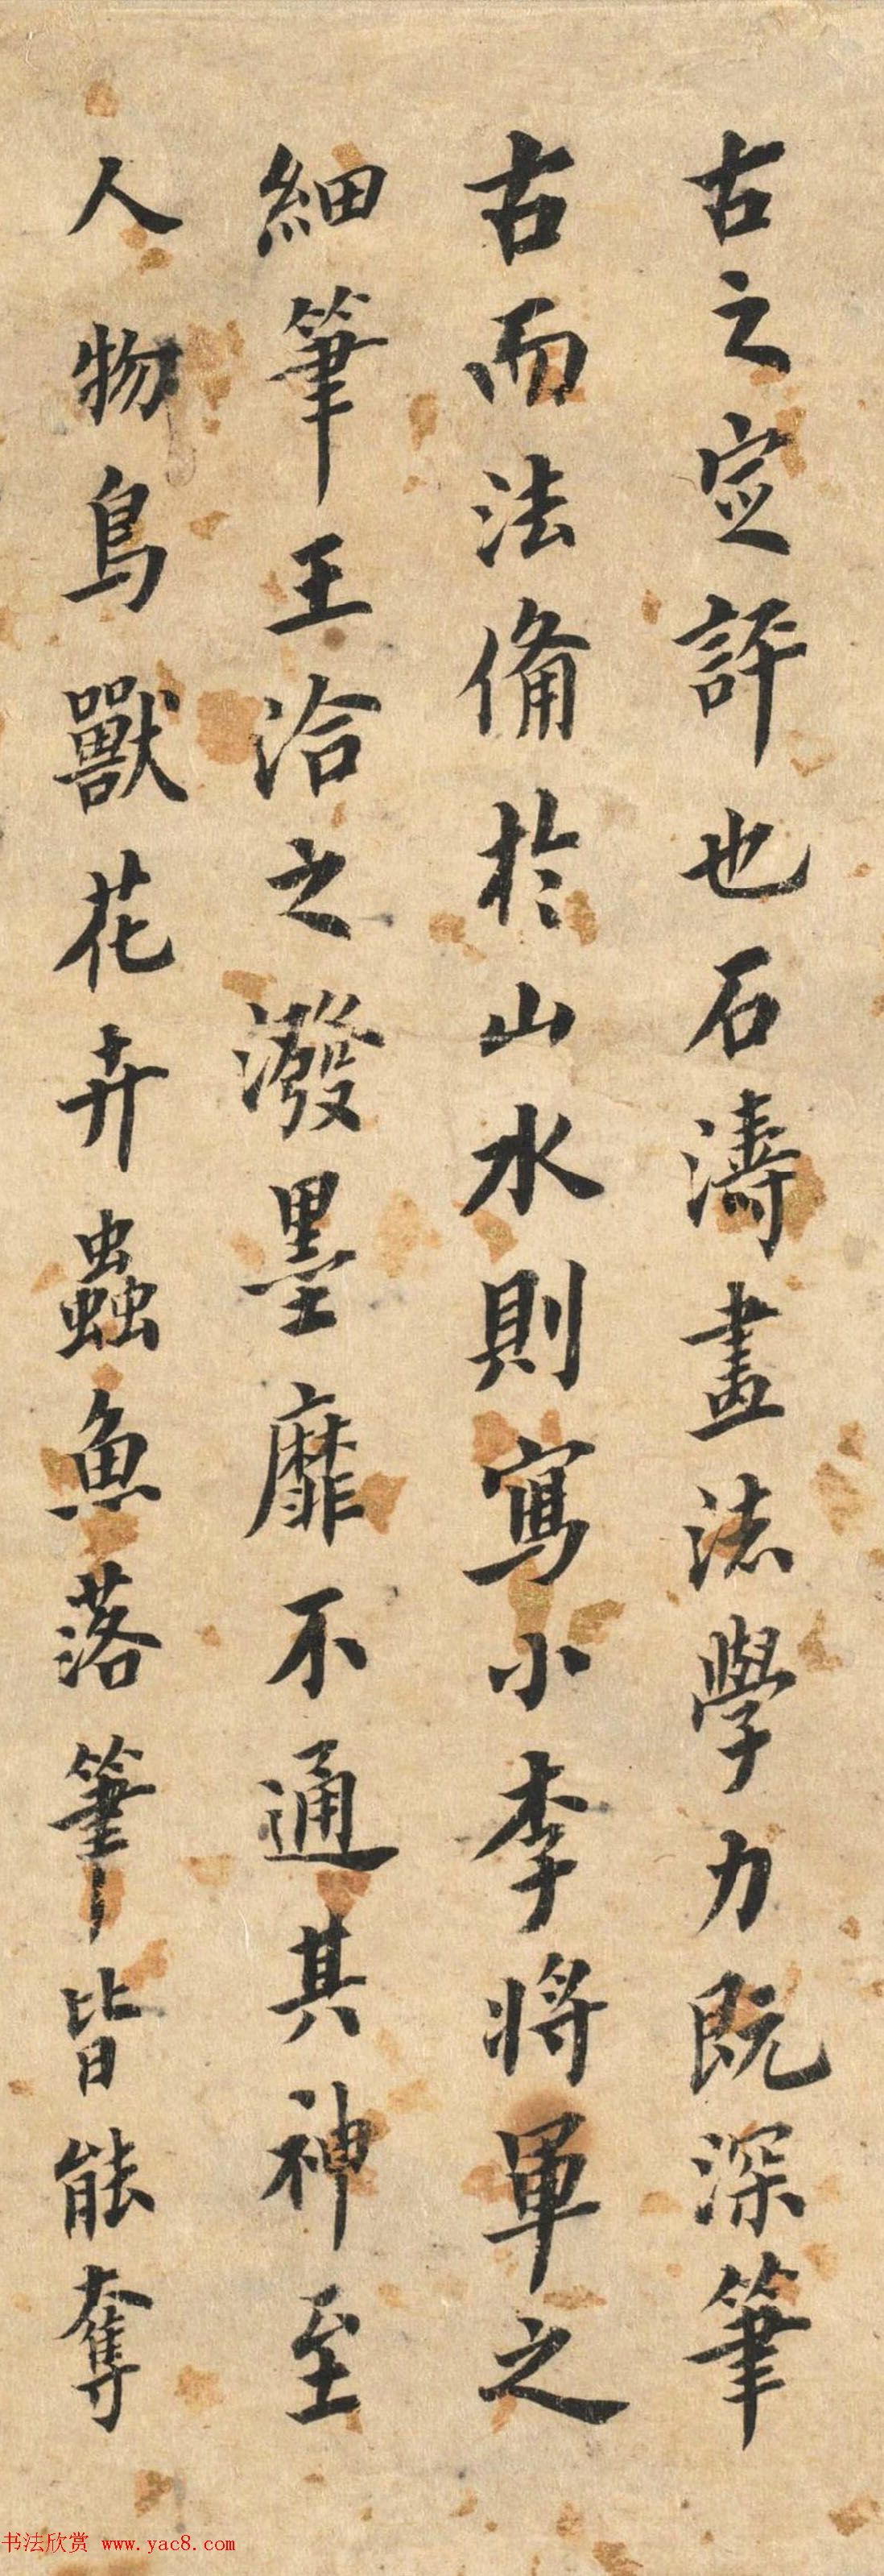 古之定評也石濤畫法學力既深筆
古而法備於山水則寫小李將軍之
細筆王洽之潑墨靡不通其神至
人物鳥獸花卉蟲魚落筆皆能奪
书法欣赏 www.yac8.com